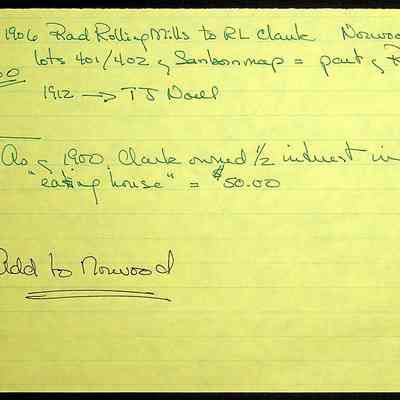 1906 Rad Rolling Mills to RL Clark Norwoo
lots 401/402 of Sanborn map = part of
00
1912 → TJ Noell
As of 1900, Clark owned 1/2 interest in
"eating house" = $50.00
Add to Norwood